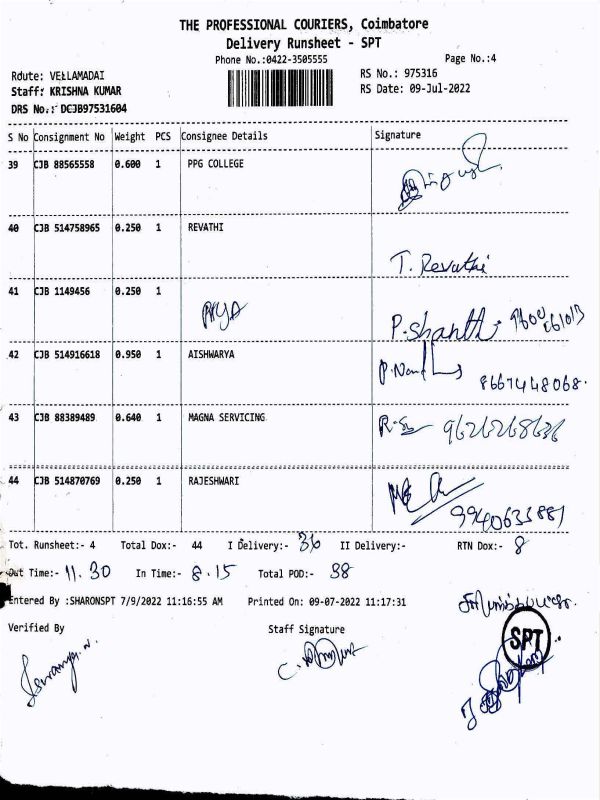 THE PROFESSIONAL COURIERS, Coimbatore
Delivery Runsheet - SPT
Phone No.:0422-3505555
Page No.:4
Rdute: VELLAMADAI
RS No.: 975316
Staff: KRISHNA KUMAR
RS Date: 09-Jul-2022
DRS No.: DCJB97531604
S No Consignment No Weight PCS Consignee Details Signature
39 CJB 88565558 0.600 1 PPG COLLEGE
40 CJB 514758965 0.250 1 REVATHI T. Revathi
41 CJB 1149456 0.250 1 PRIYA P. Shanthi
42 CJB 514916618 0.950 1 AISHWARYA 8667448068.
43 CJB 88389489 0.640 1 MAGNA SERVICING
44 CJB 514870769 0.250 1 RAJESHWARI 9940633881
Tot. Runsheet:- 4 Total Dox:- 44 I Delivery:- 36 II Delivery:- RTN Dox:- 8
Out Time:- 11.30 In Time:- 8.15 Total POD:- 38
Entered By :SHARONSPT 7/9/2022 11:16:55 AM Printed On: 09-07-2022 11:17:31
Verified By Staff Signature
SPT